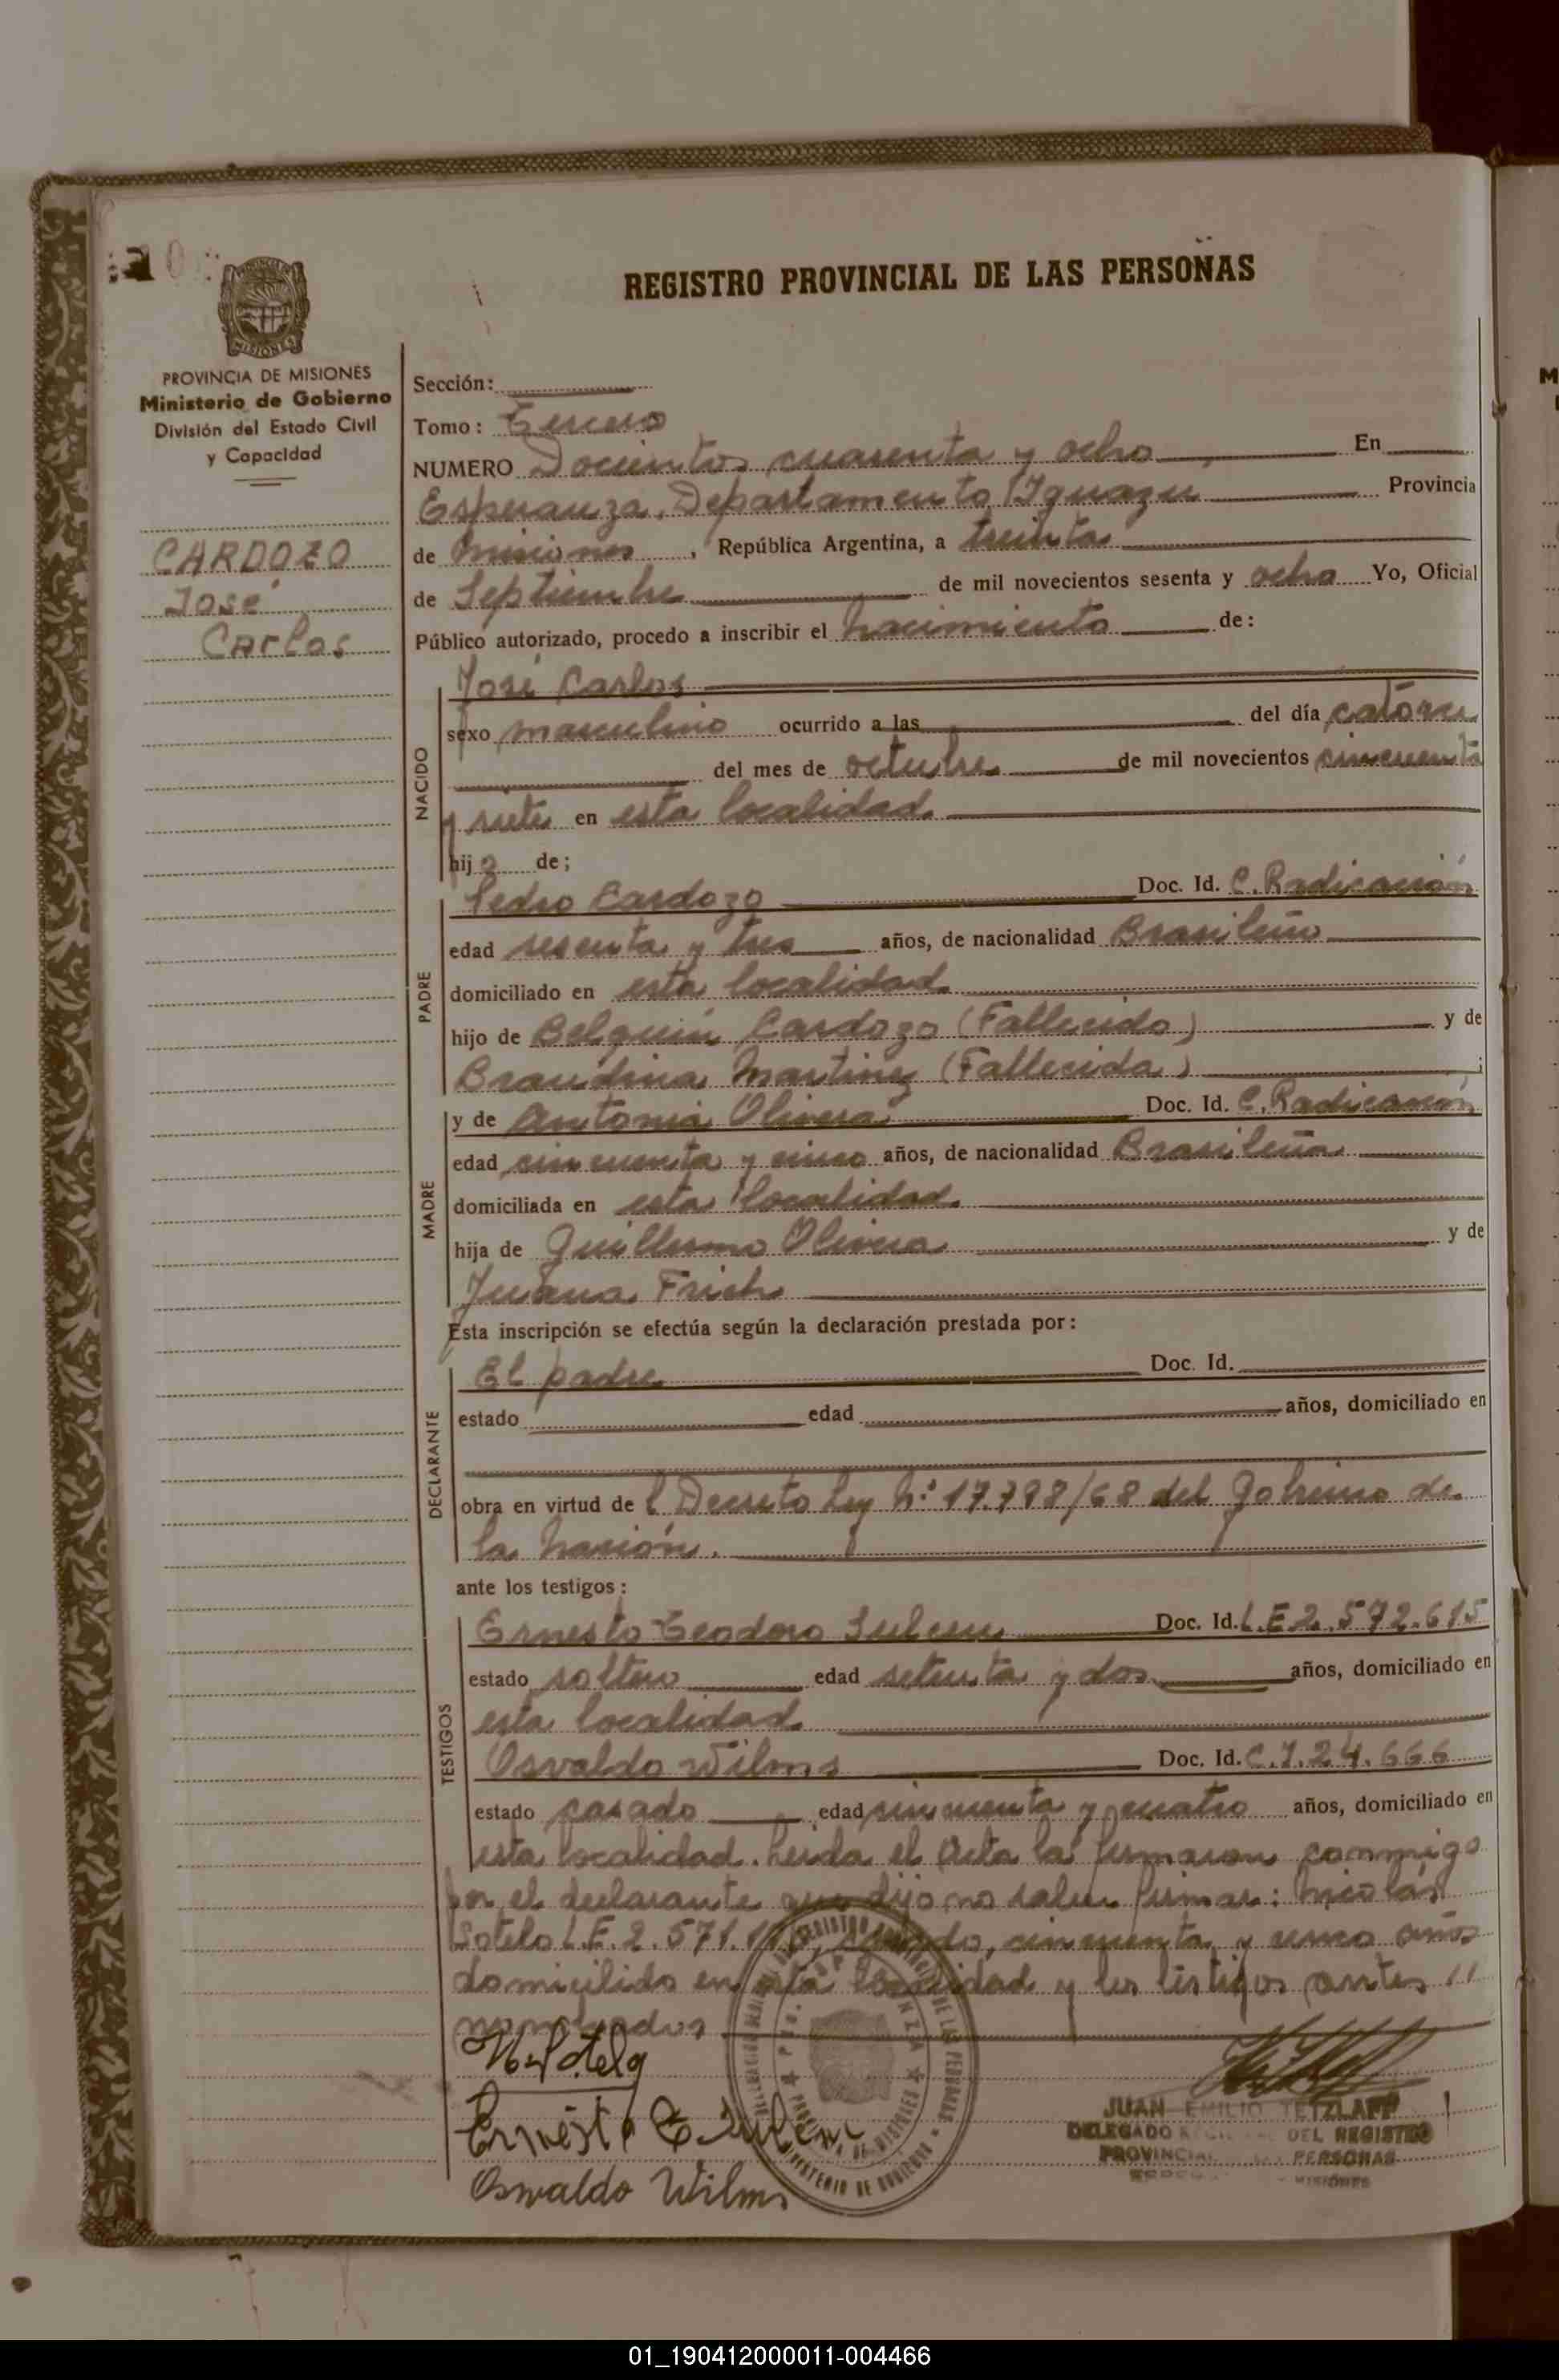 REGISTRO PROVINCIAL DE LAS PERSONAS
PROVINCIA DE MISIONES
Ministerio de Gobierno
División del Estado Civil
y Capacidad
CARDOZO
José
Carlos
Sección:
Tomo: Tercero
NUMERO Docientos cuarenta y ocho En
Esperanza, Departamento Iguazu Provincia
de Misiones, República Argentina, a treinta
de Septiembre de mil novecientos sesenta y ocho Yo, Oficial
Público autorizado, procedo a inscribir el nacimiento de:
NACIDO
José Carlos
sexo masculino ocurrido a las del día catorce
del mes de octubre de mil novecientos cincuenta
y siete en esta localidad.
hijo de;
PADRE
Pedro Cardozo Doc. Id. C. Radicación
edad sesenta y tres años, de nacionalidad Brasileño
domiciliado en esta localidad.
hijo de Cardozo (Fallecido) y de
Braudina Martinez (Fallecida);
MADRE
y de Antonia Olivera Doc. Id. C. Radicación
edad cincuenta y cinco años, de nacionalidad Brasileña
domiciliada en esta localidad.
hija de Guillermo Olivera y de
Juana Frich
Esta inscripción se efectúa según la declaración prestada por:
DECLARANTE
El padre Doc. Id.
estado edad años, domiciliado en
obra en virtud de l Decreto Ley N° 17.798/68 del Gobierno de
la Nación.
ante los testigos:
TESTIGOS
Ernesto Teodoro Doc. Id. L.E 2.572.615
estado soltero edad setenta y dos años, domiciliado en
esta localidad.
Osvaldo Wilms Doc. Id. C.I. 24.666
estado casado edad cincuenta y cuatro años, domiciliado en
esta localidad. Leida el Acta la firmaron conmigo
por el declarante que dijo no saber firmar: Nicolás
Sotelo L.E. 2.571. casado, cincuenta y cinco años
domicilido en esta localidad y los testigos antes //
nombrados
Osvaldo Wilms
JUAN EMILIO TETZLAFF
DELEGADO DEL REGISTRO
PROVINCIAL PERSONAS
MISIONES
01_190412000011-004466